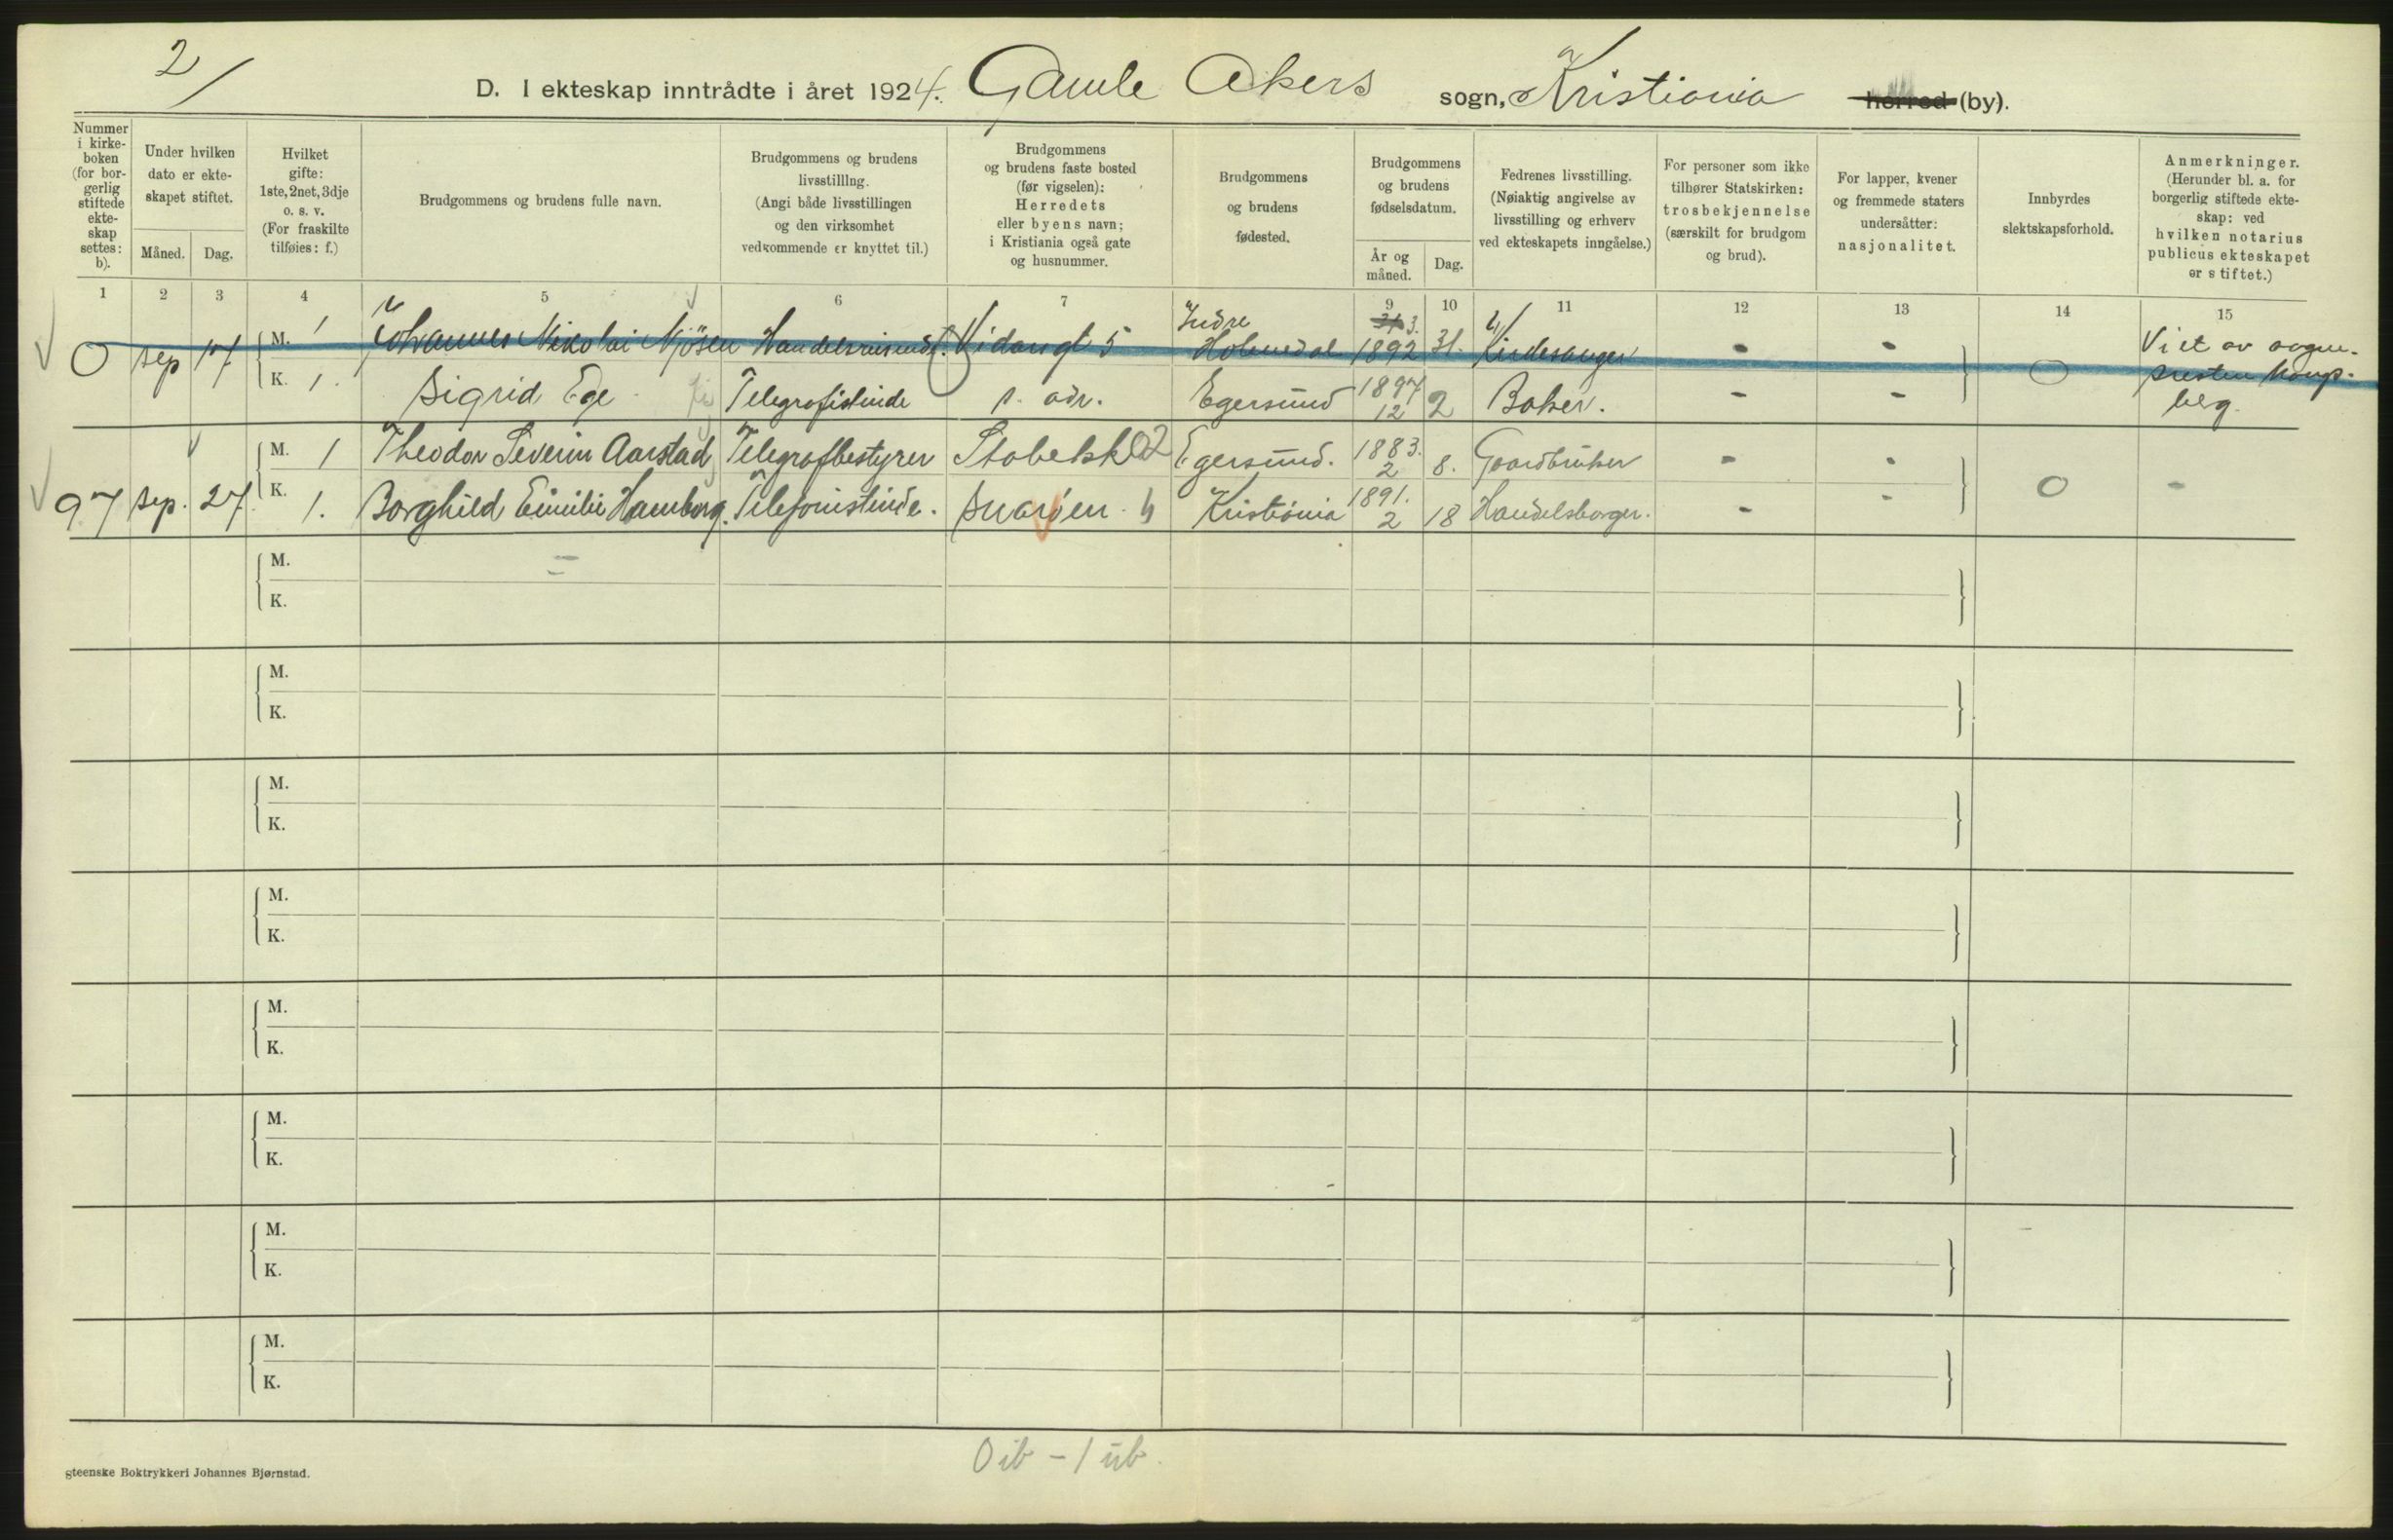 2/
D. I ekteskap inntrådte i året 1924. Gamle Akers sogn, Kristiania herred (by).
Nummer i kirke-boken (for bor-gerlig stiftede ekte-skap settes: b).
Under hvilken dato er ekte-skapet stiftet.
Måned.
Dag.
Hvilket gifte: 1ste, 2net, 3dje o. s. v. (For fraskilte tilføies: f.)
Brudgommens og brudens fulle navn.
Brudgommens og brudens livsstilling. (Angi både livsstillingen og den virksomhet vedkommende er knyttet til.)
Brudgommens og brudens faste bosted (før vigselen): Herredets eller byens navn; i Kristiania også gate og husnummer.
Brudgommens og brudens fødested.
Brudgommens og brudens fødselsdatum.
År og måned.
Dag.
Fedrenes livsstilling. (Nøiaktig angivelse av livsstilling og erhverv ved ekteskapets inngåelse.)
For personer som ikke tilhører Statskirken: trosbekjennelse (særskilt for brudgom og brud).
For lapper, kvener og fremmede staters undersåtter: nasjonalitet.
Innbyrdes slektskapsforhold.
Anmerkninger. (Herunder bl. a. for borgerlig stiftede ekte-skap: ved hvilken notarius publicus ekteskapet er stiftet.)
1 2 3 4 5 6 7 9 10 11 12 13 14 15
0 sep 17 M. 1 Johannes Nikolai Mjösen Handelsreisende. 5 Indre Holmedal 3. 1892 31. Kirkesanger - - 0 Viet av sogne-presten Koup-berg.
K. 1. Sigrid Ege Telegrafistinde s. adr. Egersund 1897 12 2 Baker. - -
97 sep. 27. M. 1 Theodor Severin Aarstad Telegrafbestyrer Egersund. 1883. 2 8. Gaardbruker - - 0 -
K. 1. Borghild Emilie Hamborg. Telefonistinde. Kristiania 1891. 2 18 Handelsborger. - -
M.
K.
M.
K.
M.
K.
M.
K.
M.
K.
M.
K.
M.
K.
M.
K.
0 ib - 1 ub.
gteenske Boktrykkeri Johannes Bjørnstad.